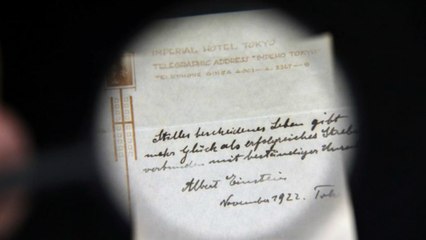 IMPERIAL HOTEL TOKYO
TELEGRAPHIC ADDRESS "IMPEHO TOKYO
TELEPHONE GINZA
Stilles bescheidenes Leben gibt
mehr Glück als erfolgreiches Streben
verbunden mit beständiger Unruhe
Albert Einstein
November 1922. Tok